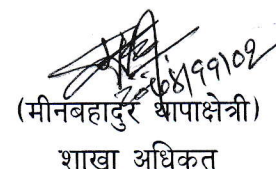 २०६८/११/०२
(मीनबहादुर थापाक्षेत्री)
शाखा अधिकृत